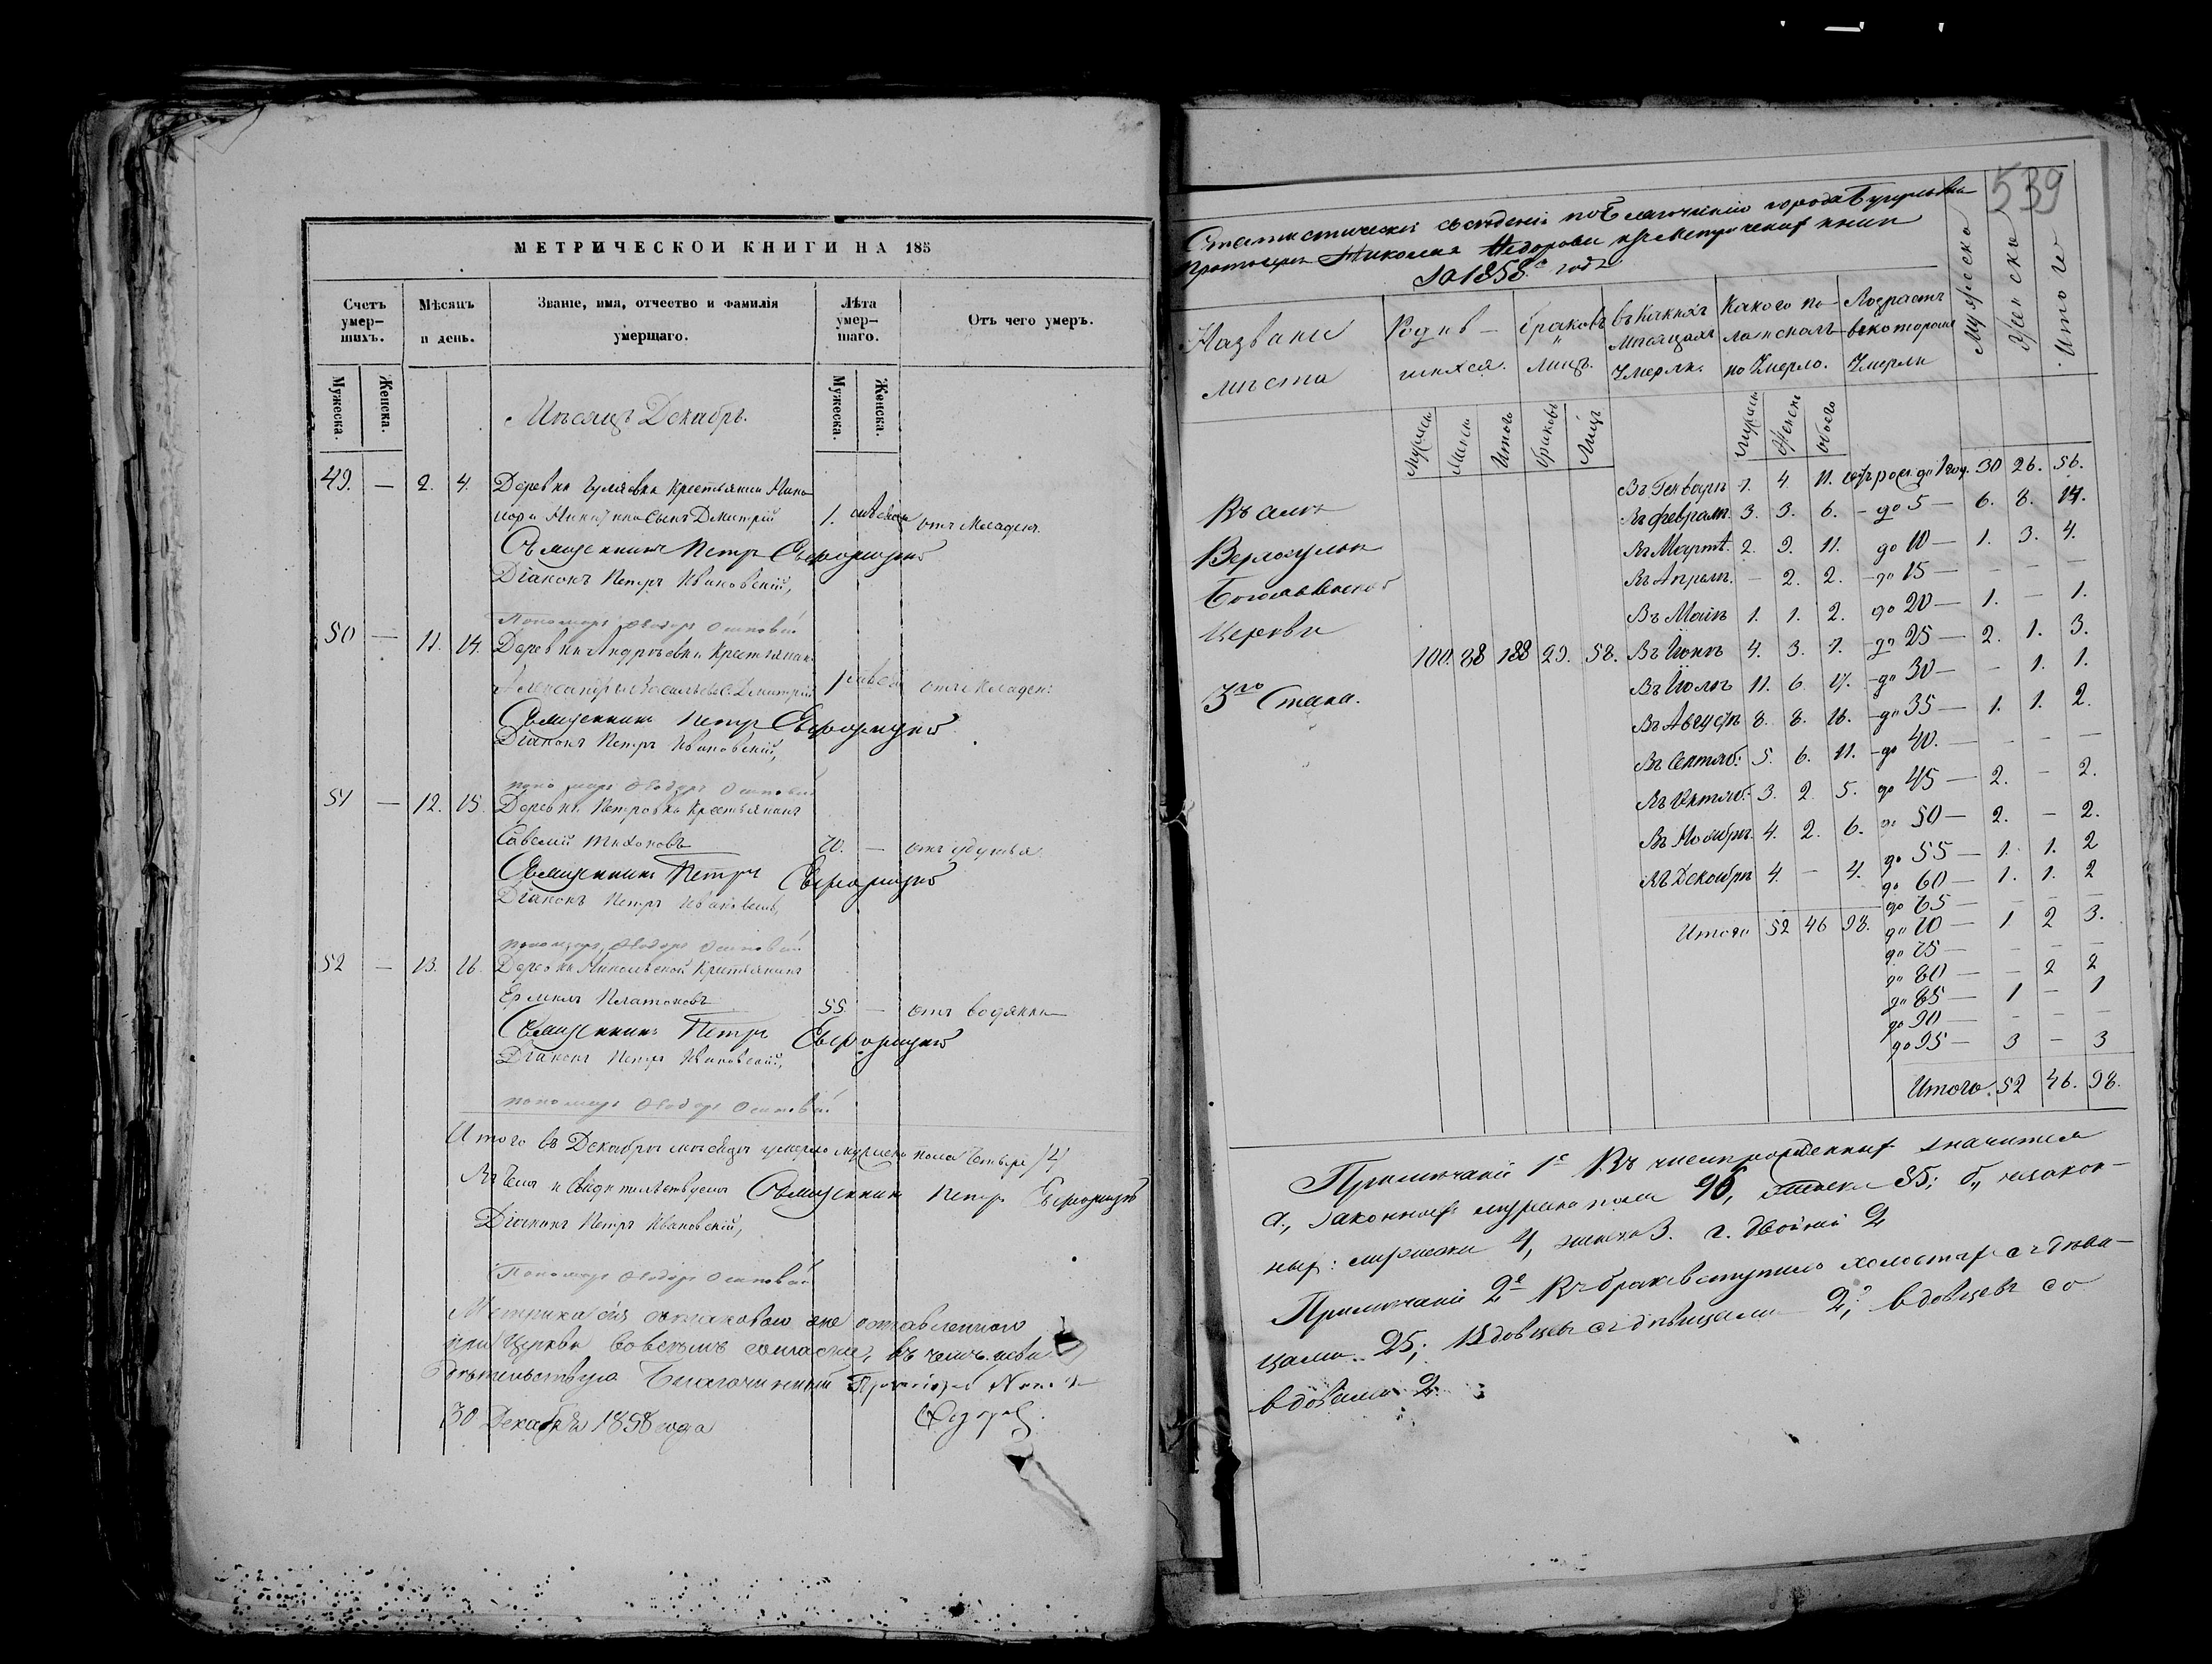 МЕТРИЧЕСКОЙ КНИГИ НА 185
Счетъ умер-шихъ.
Мѣсяцъ и день.
Званіе, имя, отчество и фамилія умершаго.
Лѣта умер-шаго.
Отъ чего умеръ.
Мужеска. Женска.
Мужеска. Женска.
Мѣсяцъ Декабрь.
49. — 2. 4. Деревни Гуляевки Крестьянина Ника-
нора Никитина Сынъ Димитрій 1. отъ младен.
Священникъ Петръ
Діаконъ Петръ Ивановскій,
Пономарь Ѳеодоръ Осиповъ
50 — 11. 14. Деревни Андреевки Крестьянина
Александра Васильева С. Димитрій 1 отъ младен:
Священникъ Петръ
Діаконъ Петръ Ивановскій,
пономарь Ѳеодоръ Осиповъ
51 — 12. 15. Деревни Петровки Крестьянинъ
Савелій Тихоновъ 70. — отъ удушья
Священникъ Петръ
Діаконъ Петръ Ивановскій,
пономарь Ѳеодоръ Осиповъ
52 — 13. 16. Деревни Никольской Крестьянинъ
Ермилъ Платоновъ 55 — отъ водянки
Священникъ Петръ
Діаконъ Петръ Ивановскій,
пономарь Ѳеодоръ Осиповъ
Итого въ Декабрѣ мѣсяцѣ умерло мужеска пола четыре /4/
Въ чемъ и свидѣтельствуемъ Священникъ Петръ
Діаконъ Петръ Ивановскій,
Пономарь Ѳеодоръ Осиповъ
Метрика сія съ таковою же оставленною
при Церкви во всемъ согласна, въ чемъ и сви
дѣтельствую Благочинный Протоіерей
30 Декабря 1858 года
539
Статистическія свѣденія по Благочинію города Бугульмы
Протоіерея Николая Ѳедорова изъ Метрическихъ книгъ
За 1858й годъ
Названіе мѣста
Родив-шихся.
браковъ и лицъ.
въ какихъ мѣсяцахъ умерли.
Какого по-ла и сколь-ко умерло.
Возрастъ въ которомъ умерли
Мужеска Женска Итого
Мужеска Женска Итого Браковъ Лицъ
Мужеска Женска Обоего
Въ селѣ
Богоявленской
Церкви
3го Стана.
100. 88 188 29. 58.
Въ Генварѣ 7. 4. 11. отъ рож. до 1 год. 30 26. 56.
Въ Февралѣ 3. 3. 6. — до 5 — 6. 8. 14.
Въ Мартѣ. 2. 9. 11. до 10 — 1. 3. 4.
Въ Апрѣлѣ. — 2. 2. — до 15 — — — —
Въ Маѣ 1. 1. 2. до 20 — 1. — 1.
Въ Іюнѣ 4. 3. 7. — до 25 — 2. 1. 3.
Въ Іюлѣ 11. 6 17. — до 30 — — 1. 1.
Въ Августѣ 8. 8. 16. — до 35 — 1. 1. 2.
Въ Сентяб: 5. 6. 11. — до 40. — — — —
Въ Октяб: 3. 2. 5. до 45 — 2. — 2.
Въ Ноябрѣ 4. 2. 6. до 50 — 2. — 2.
до 55 — 1. 1. 2
Въ Декабрѣ 4. — 4. до 60 — 1. 1. 2
до 65 — — — —
Итого 52 46 98. до 70 — 1 2 3.
до 75 — — — —
до 80 — — 2 2
до 85 — 1 — 1
до 90 — — — —
до 95 — 3 — 3
Итого. 52 46. 98.
Примѣчаніе 1е Въ числѣ рожденныхъ значится
а., законныхъ мужеска пола 96, женска 85; б., незакон-
ныхъ: мужеска 4, женска 3. г. двойней 2
Примѣчаніе 2е Въ бракъ вступило холостыхъ съ дѣви-
цами 25; Вдовцевъ съ дѣвицами 2; вдовцевъ со
вдовами 2.